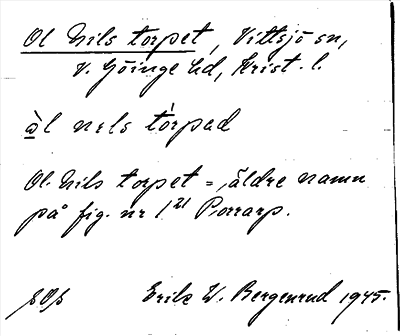 Ol Nils torpet, Vittsjö sn,
V. Göinge hd, Krist. l.
o̱̊̀l nɩls tò̀rpad
Ol. Nils torpet = äldre namn
på fig. nr 1²¹ Porrarp.
Erik W. Bergenrud 1945.